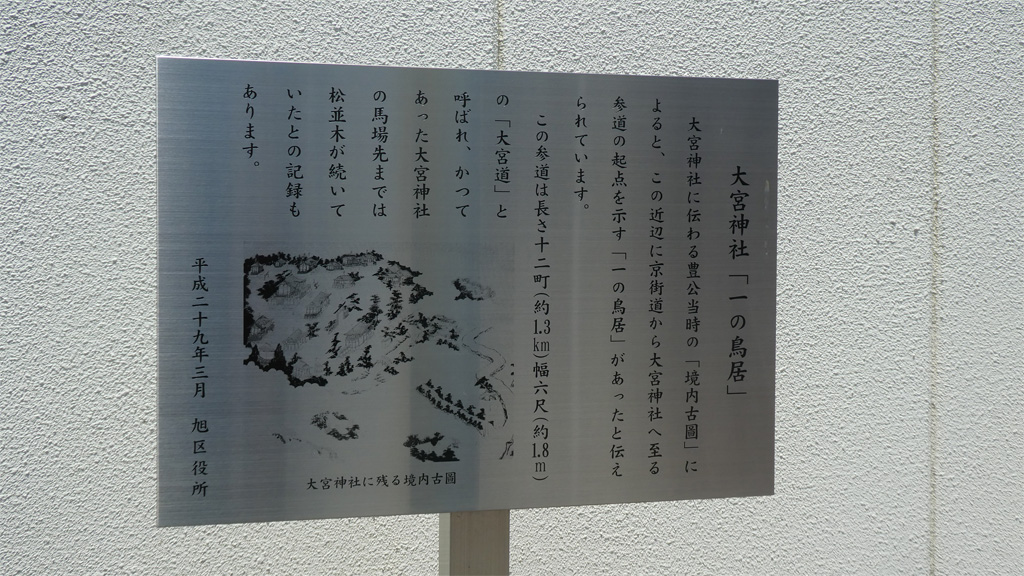 大宮神社「一の鳥居」
大宮神社に伝わる豊公当時の「境内古圖」に
よると、この近辺に京街道から大宮神社へ至る
参道の起点を示す「一の鳥居」があったと伝え
られています。
この参道は長さ十二町(約1.3km)幅六尺(約1.8m)
の「大宮道」と
呼ばれ、かつて
あった大宮神社
の馬場先までは
松並木が続いて
いたとの記録も
あります。
大宮神社に残る境内古圖
平成二十九年三月 旭区役所